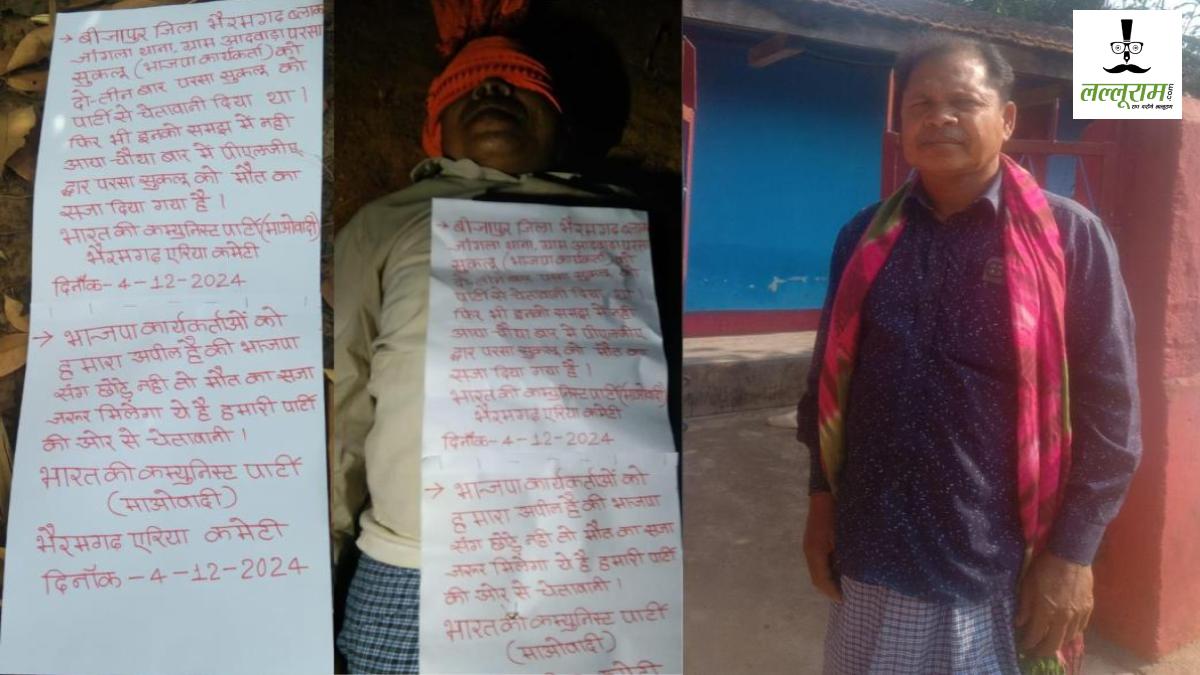 → बीजापुर जिला भैरमगढ़ ब्लाक
जांगला थाना, ग्राम आदवाड़ा परसा
सुकलू (भाजपा कार्यकर्ता) को
दो-तीन बार परसा सुकलू को
पार्टी से चेतावनी दिया था ।
फिर भी इनको समझ में नही
आया चौथा बार में पीएलजीए
द्वार परसा सुकलू को मौत का
सजा दिया गया है ।
भारत की कम्युनिस्ट पार्टी (माओवादी)
भैरमगढ़ एरिया कमेटी
दिनॉक - 4 - 12 - 2024
→ भाजपा कार्यकर्ताओं को
हमारा अपील है की भाजपा
संग छोडे़ नही तो मौत का सजा
जरूर मिलेगा ये है हमारी पार्टी
की ओर से चेतावनी ।
भारत की कम्युनिस्ट पार्टी
(माओवादी)
भैरमगढ़ एरिया कमेटी
दिनॉक - 4 - 12 - 2024
→ बीजापुर जिला भैरमगढ़ ब्लाक
जांगला थाना, ग्राम आदवाड़ा परसा
सुकलू (भाजपा कार्यकर्ता) को
दो-तीन बार परसा सुकलू को
पार्टी से चेतावनी दिया था
फिर भी इनको समझ में नही
आया चौथा बार में पीएलजीए
द्वार परसा सुकलू को मौत का
सजा दिया गया है ।
भारत की कम्युनिस्ट पार्टी (माओवादी)
भैरमगढ़ एरिया कमेटी
दिनॉक - 4 - 12 - 2024
→ भाजपा कार्यकर्ताओं को
हमारा अपील है की भाजपा
संग छोडे़ नही तो मौत का सजा
जरूर मिलेगा ये है हमारी पार्टी
की ओर से चेतावनी ।
भारत की कम्युनिस्ट पार्टी
(माओवादी)
लल्लूराम.com